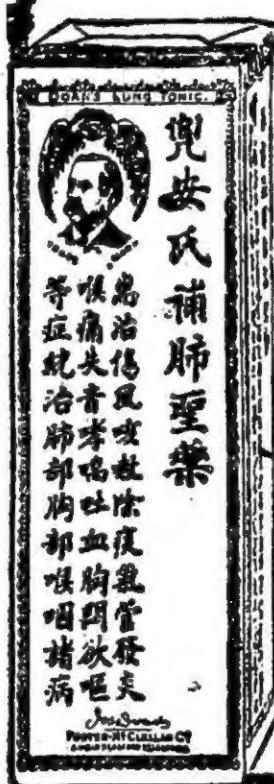 DOAN'S LUNG TONIC.
TRADE MARK
兜安氏補肺聖藥
專治傷風咳嗽除痰氣管發炎
喉痛失音哮喘吐血胸悶欲嘔
等症統治肺部胸部喉咽諸病
FOSTER-McCLELLAN Co